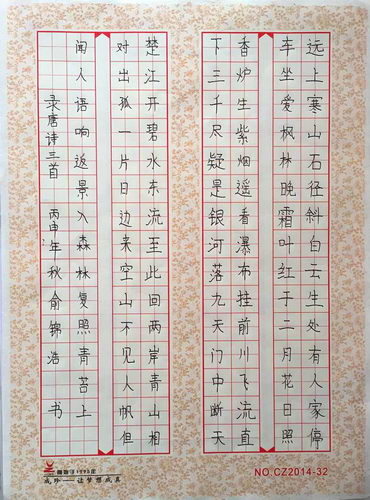 远上寒山石径斜白云生处有人家停
车坐爱枫林晚霜叶红于二月花日照
香炉生紫烟遥看瀑布挂前川飞流直
下三千尺疑是银河落九天门中断天
楚江开碧水东流至此回两岸青山相
对出孤一片日边来空山不见人帆但
闻人语响返景入森林复照青苔上
录唐诗三首 丙申年秋 俞锦浩 书
成珍——让梦想成真
NO.CZ2014-32